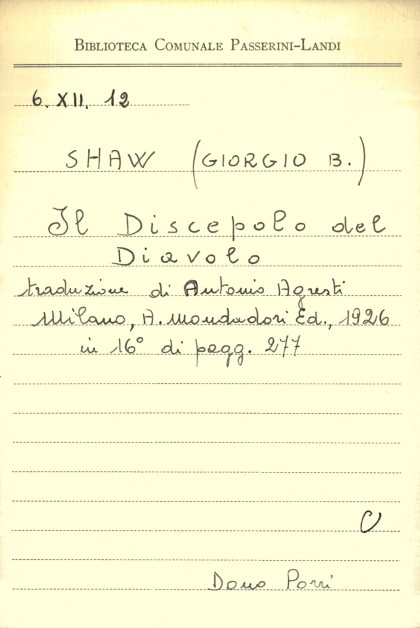 BIBLIOTECA COMUNALE PASSERINI-LANDI
6. XII. 12
SHAW (GIORGIO B.)
Il Discepolo del
Diavolo
traduzione di Antonio Agresti
Milano, A. Mondadori Ed., 1926
in 16° di pagg. 277
C
Dono Porri